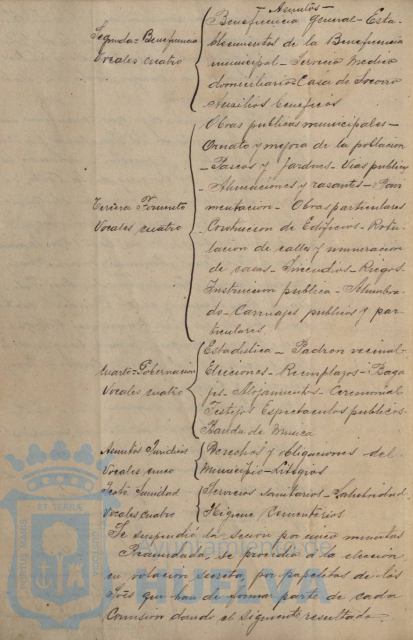 Asuntos—
Segunda=Beneficencia
Vocales cuatro
Beneficencia general—Esta-
blecimientos de la Beneficencia
municipal—Servicio Medico
domiciliario Casa de Socorro
Auxilios beneficos
Tercera Fomento
Vocales cuatro
Obras publicas municipales—
Ornato y mejora de la poblacion
—Paseos y Jardines—Vias public
—Alineaciones y rasantes—Pavi
mentacion—Obras particulares
—Contrucion de Edificios—Rotu-
lacion de calles y numeracion
de casas—Incendios—Riegos
Instruccion publica—Alumbra-
do—Carruajes publicos y par-
ticulares
Cuarta=Gobernacion
Vocales cuatro
Estadistica—Padron vecinal—
Elecciones—Reemplazos—Baga
jes—Alojamientos—Ceremonial
Festejos Espectaculos publicos
Banda de Musica
Asuntos Juridicos
Vocales cinco
Derechos y obligaciones del
Municipio—Litigios
Sesta Sanidad
Vocales cuatro
Servicios Sanitarios—Salubridad
Higiene Cementerios
Se suspendió la sesion por cinco minutos
Reanudada, se procedió a la eleccion
en votacion secreta, por papeletas de los
Sres que han de formar parte de cada
Comision dando el siguiente resultado.
Ayuntamiento de
HUELVA